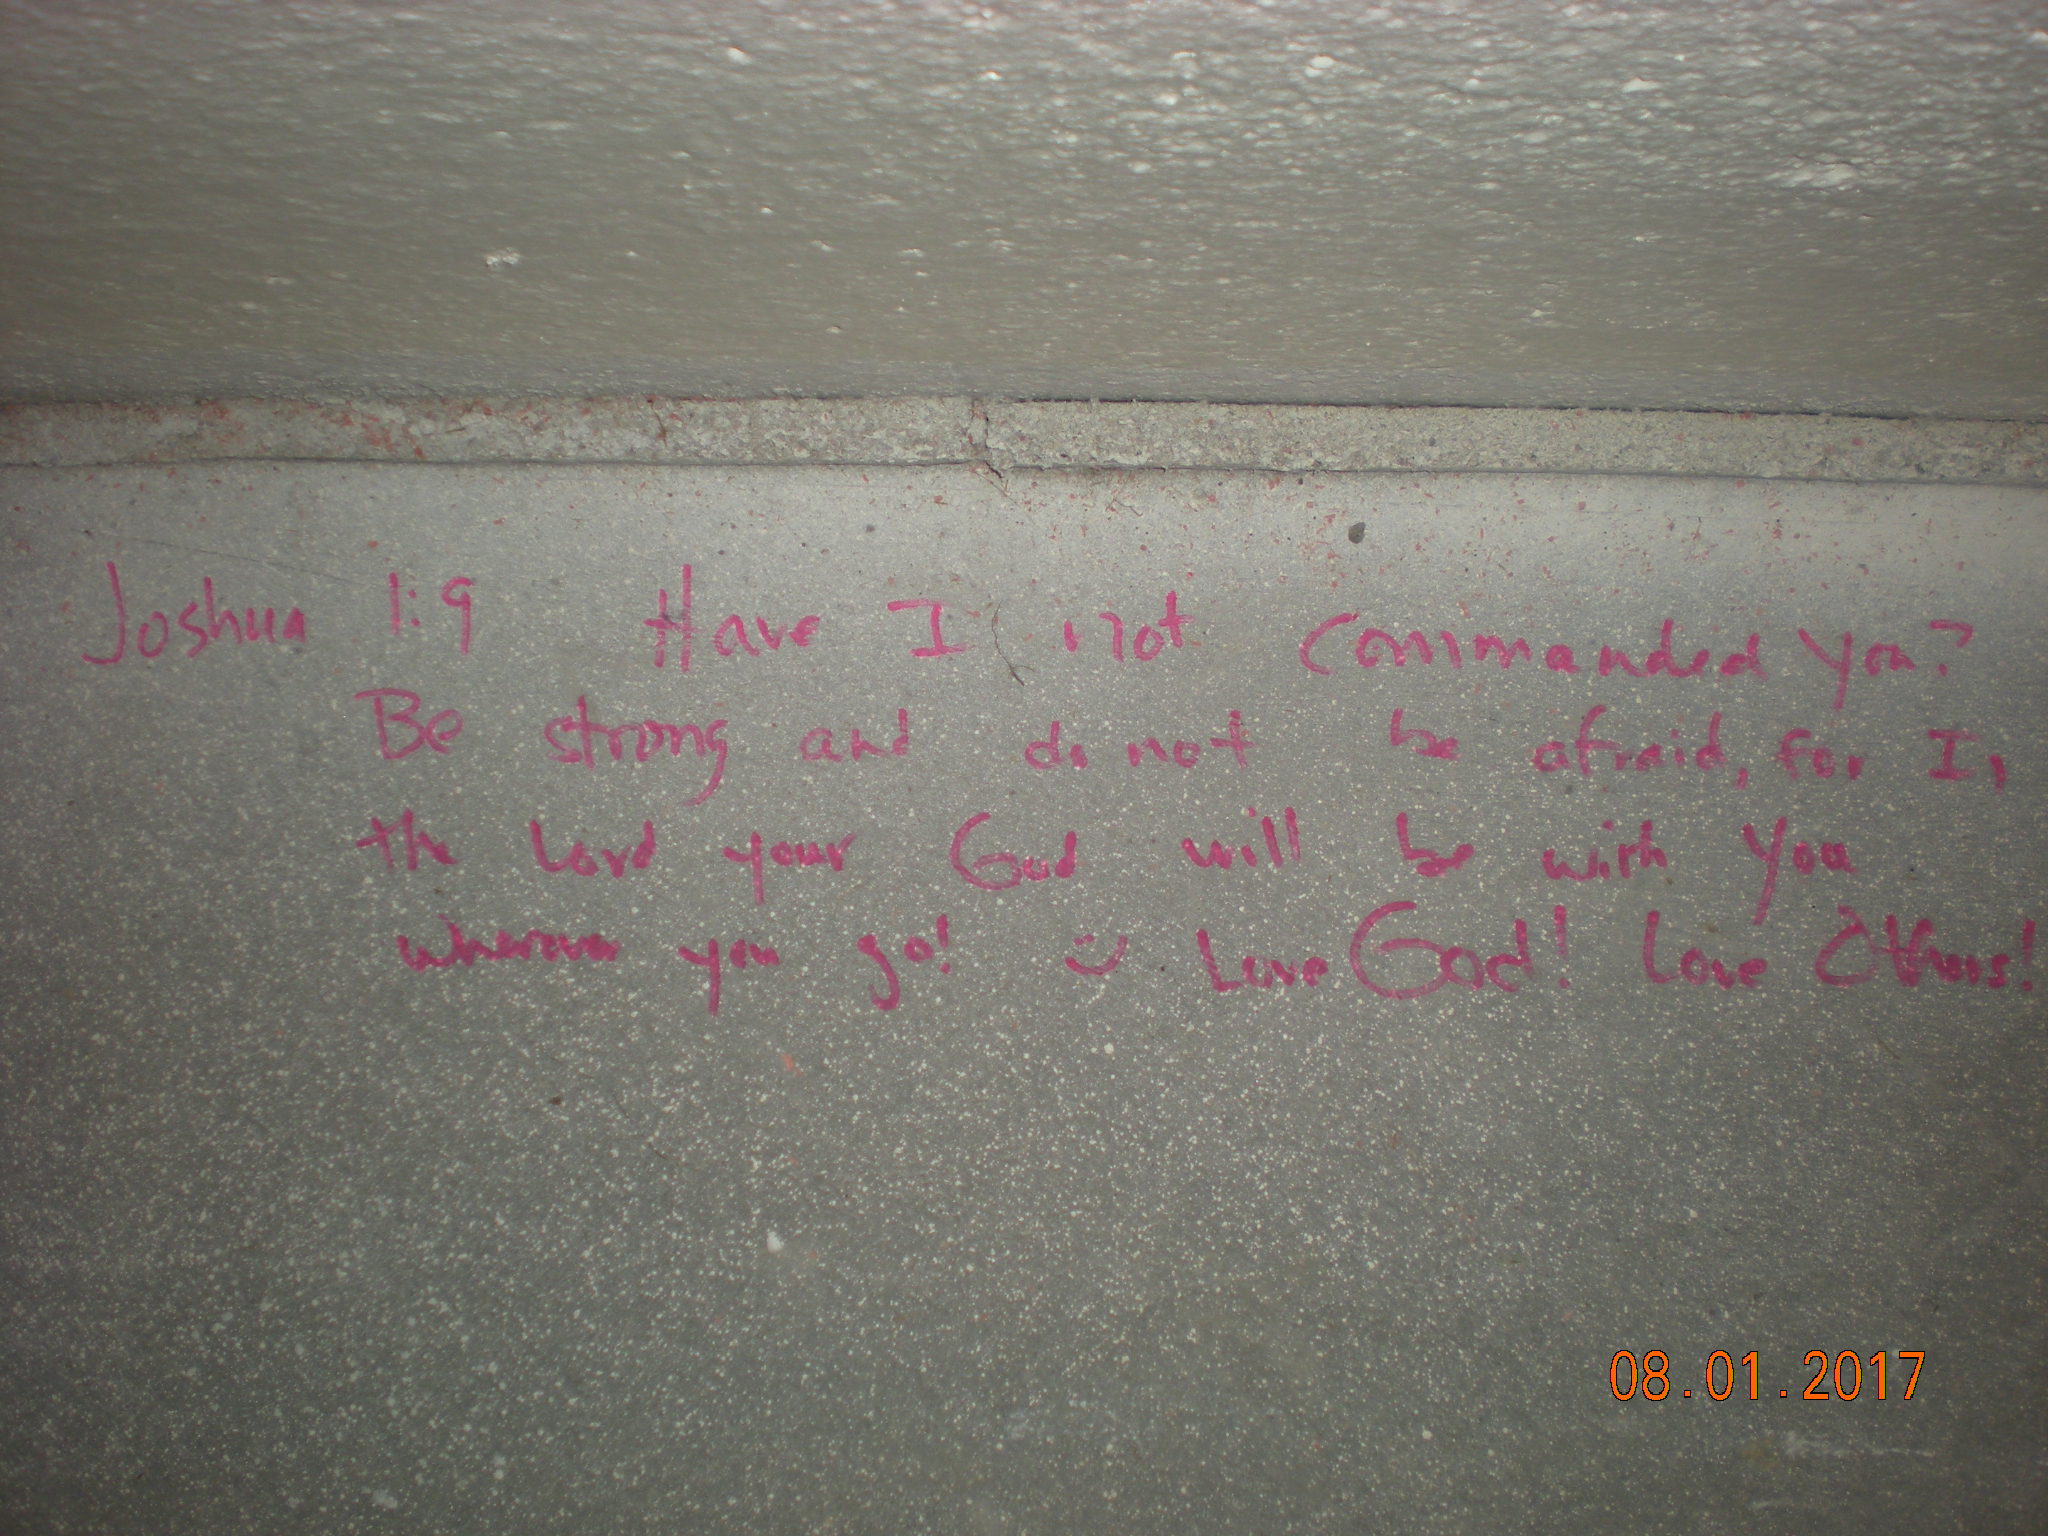 Joshua 1:9 Have I not commanded you?
Be strong and do not be afraid, for I,
the Lord your God will be with you
wherever you go! :) Love God! Love Others!
08.01.2017